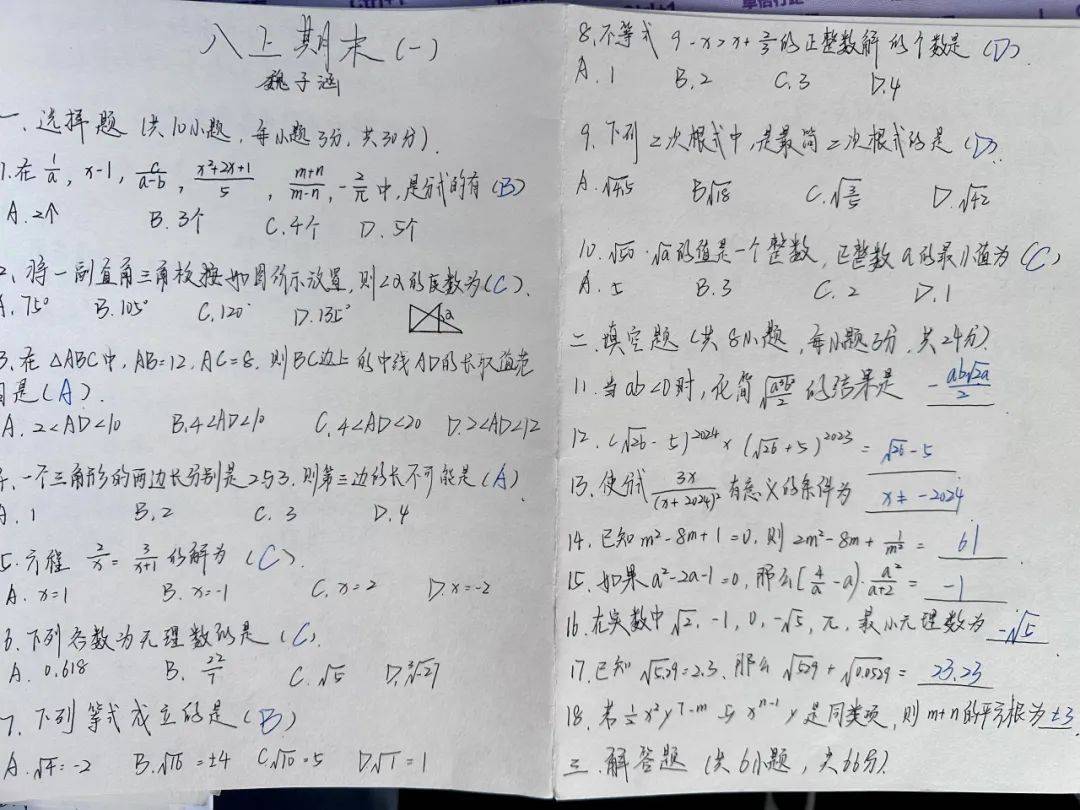 八上期末(一)
魏子涵
一、选择题(共10小题,每小题3分,共30分).
1.在1/a, x-1, c/(a-b), (x²+2x+1)/5, (m+n)/(m-n), -2/π中,是分式的有(B)
A.2个 B.3个 C.4个 D.5个
2、将一副直角三角板按如图所示放置,则∠α的度数为(C).
A.75° B.105° C.120° D.135° a
3.在△ABC中,AB=12,AC=8,则BC边上的中线AD的长取值范
围是(A).
A.2<AD<10 B.4<AD<10 C.4<AD<20 D.2<AD<12
4、一个三角形的两边长分别是2与3,则第三边的长不可能是(A)
A.1 B.2 C.3 D.4
5.方程 2/x=3/(x+1)的解为(C).
A.x=1 B.x=-1 C.x=2 D.x=-2
6.下列各数为无理数的是(C)
A.0.618 B.22/7 C.√5 D.³√-27
7、下列等式成立的是(B)
A.√4=-2 B.√16=±4 C√10=5 D√1=1
8.不等式 9-x>x+2/3的正整数解的个数是(D).
A.1 B.2 C.3 D.4
9.下列二次根式中,是最简二次根式的是(D)
A.√4.5 B√18 C.√(3/5) D.√42
10.√50·√a的值是一个整数,正整数a的最小值为(C)
A.5 B.3 C.2 D.1
二、填空题(共8小题,每小题3分,共24分).
11.当ab<0时,化简√(a³b²/2)的结果是 -ab√2a/2
12.(√26-5)²⁰²⁴×(√26+5)²⁰²³=√26-5
13.使分式3x/(x+2024)²有意义的条件为 x≠-2024
14.已知m²-8m+1=0,则2m²-8m+1/m²=61
15.如果a²-2a-1=0,那么(4/a-a)·a²/(a+2)=-1
16.在实数中√2,-1,0,-√5,π,最小无理数为-√5
17.已知√5.29=2.3,那么√529+√0.0529=23.23
18.若½x²y⁷⁻ᵐ与xⁿ⁻¹y是同类项,则m+n的平方根为±3
三.解答题(共6小题,共66分).